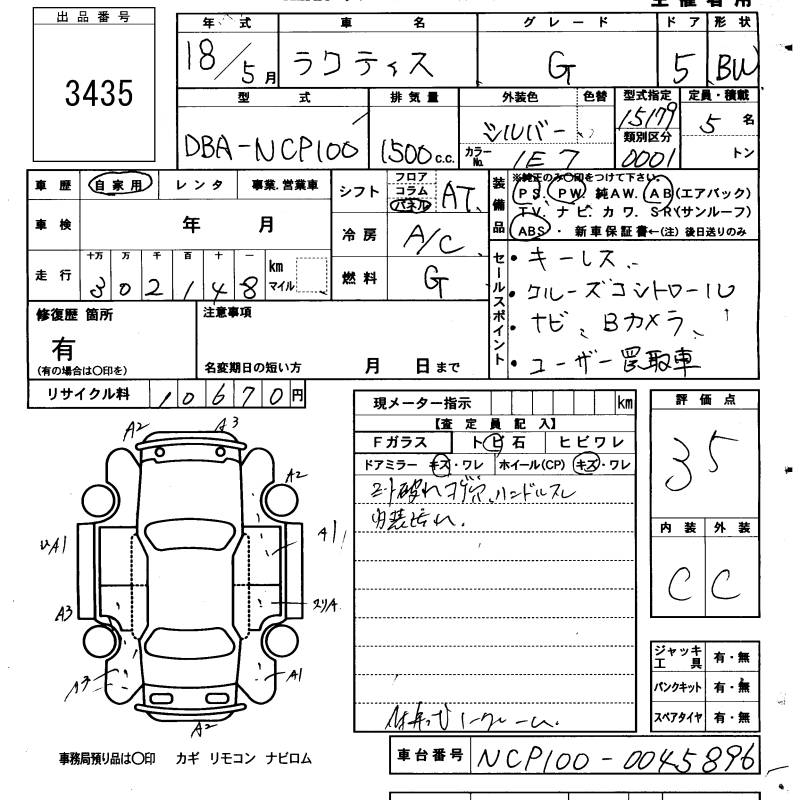 主催者用
出品番号
3435
年式 車名 グレード ドア 形状
18/5月 ラクティス G 5 BW
型式 排気量 外装色 色替 型式指定 定員・積載
DBA-NCP100 1500c.c. シルバー 15179 5名
カラーNo. 1E7 類別区分 0001 トン
車歴 自家用 レンタ 事業.営業車
車検 年 月
走行 十万 万 千 百 十 一 km マイル
302148
シフト フロア コラム パネル AT
冷房 A/C
燃料 G
装備品 ※純正のみ○印をつけて下さい。
PS. PW. 純AW. AB(エアバック)
TV. ナビ. カワ. SR(サンルーフ)
ABS・新車保証書←(注)後日送りのみ
セールスポイント
・キーレス、
・クルーズコントロール
・ナビ、Bカメラ、
・ユーザー買取車
修復歴 箇所 注意事項
有
(有の場合は○印を) 名変期日の短い方 月 日まで
リサイクル料 10670円
現メーター指示 km
【査定員記入】
Fガラス トビ石 ヒビワレ
ドアミラー キズ・ワレ ホイール(CP) キズ・ワレ
シート破れコゲ穴、ハンドルスレ
内装汚れ.
評価点
35
内装 外装
C C
A2 A3
A2
A1
A1
A3
A1
A2
ジャッキ工具 有・無
パンクキット 有・無
スペアタイヤ 有・無
事務局預り品は○印 カギ リモコン ナビロム
車台番号 NCP100-0045896